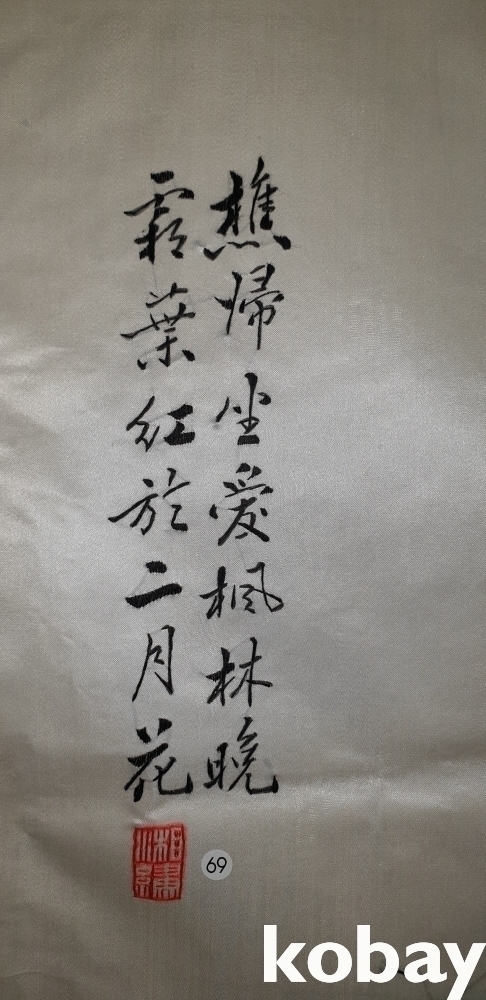 樵帰坐愛楓林晚
霜葉紅於二月花
69
kobay